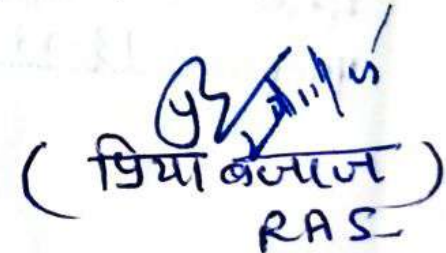 ( प्रिया बजाज )
RAS